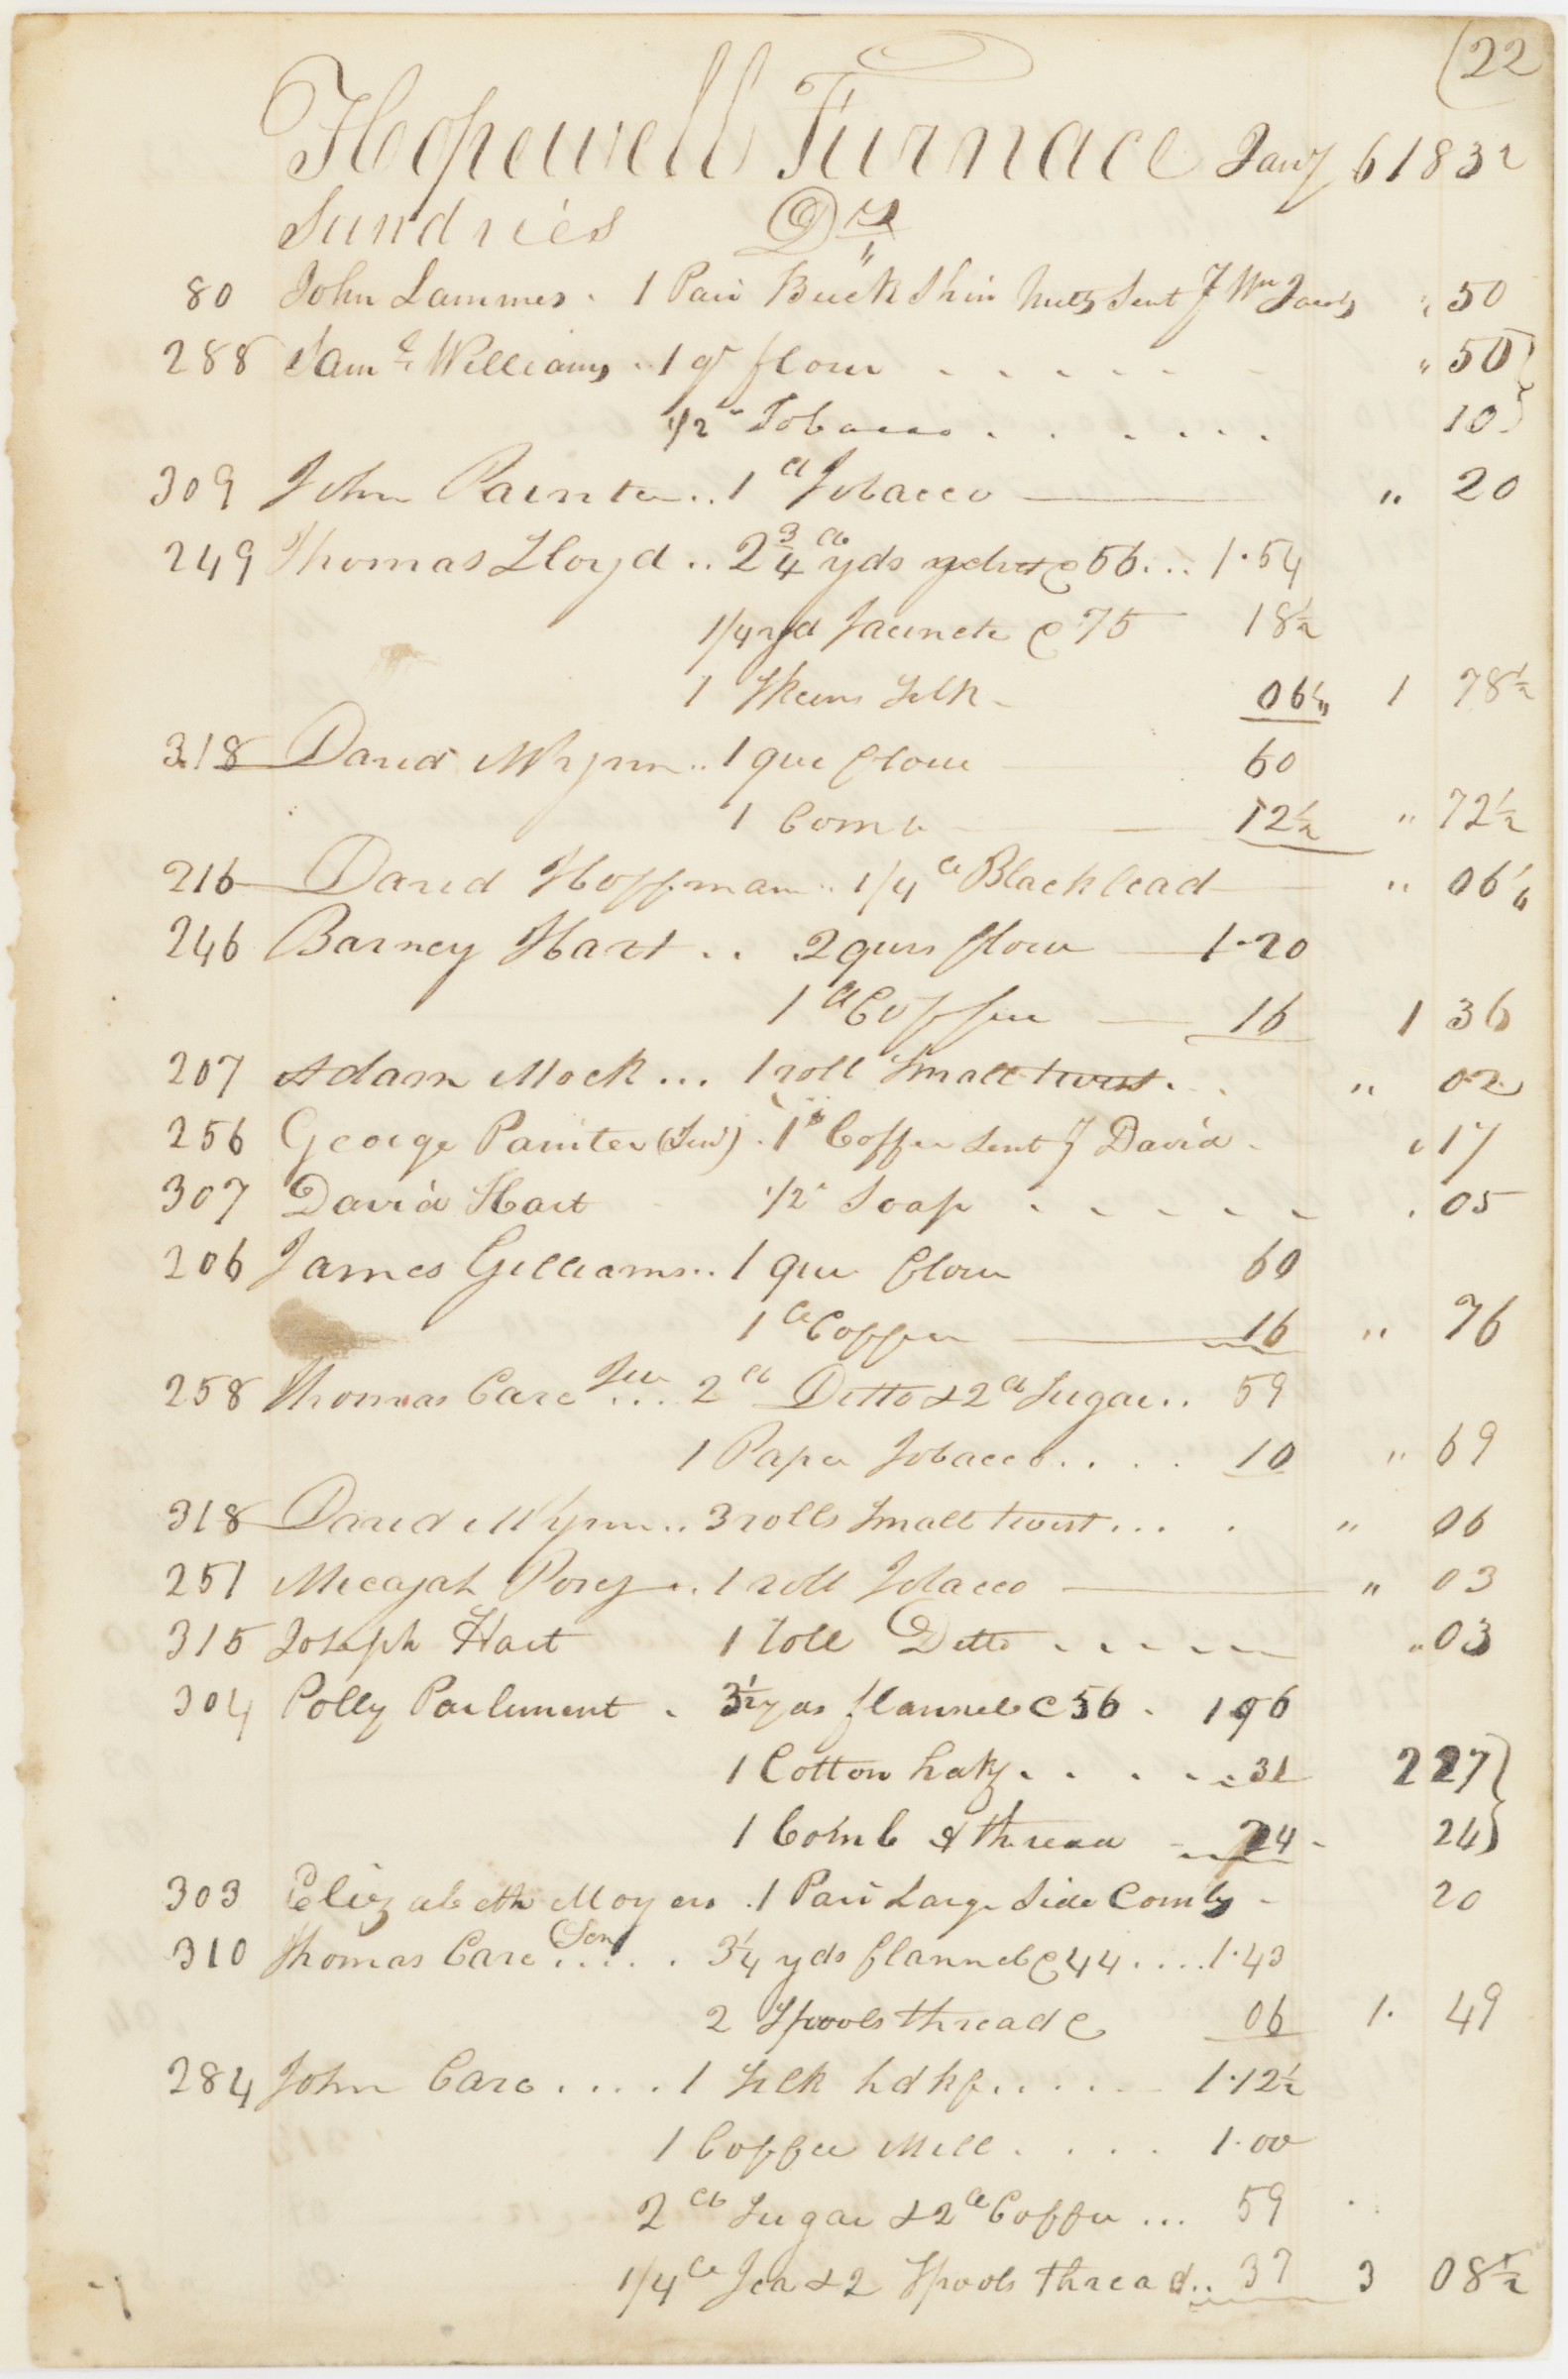 (22
Hopewell Furnace Jany 6 1832
Sundries Drs
80 John Lammes . 1 Pair Buck Skin Mitts Sent Wm Jacobs " 50
288 Saml Williams . 1 qr flour . . . . . " 50}
1/2 " Tobacco . . . . . . 10}
309 John Painter .. 1 lb Tobacco " 20
249 Thomas Lloyd .. 2 3/4 yds @ 56 ... 1.54
1/4 yd @ 75 18 1/2
1 Skein Silk - 06 1/4 1 78 1/2
318 David Wynn .. 1 qur flour 60
1 Comb 12 1/2 " 72 1/2
216 David Hoffman .. 1/4 lb Black lead " 06 1/4
246 Barney Hart .. 2 qurs flour 1.20
1 lb Coffee 16 1 36
207 Adam Mock ... 1 roll Small twist . " 02
256 George Painter (Sen) . 1 lb Coffee Sent David - " 17
307 David Hart 1/2 " Soap - - - - - . 05
206 James Gilliams .. 1 qur flour 60
1 lb Coffee 16 " 76
258 Thomas Care Jur ... 2 lb Ditto & 2 lb Sugar .. 59
1 Paper Tobacco . . . . 10 " 69
318 David Wynn .. 3 rolls Small twist ... . " 06
251 Micajah Posey .. 1 roll Tobacco " 03
315 Joseph Hart 1 roll Ditto - - - - - " 03
304 Polly Parlement . 3 1/2 yds flannel @ 56 . 1 96
1 Cotton hdkf . . . . . 31 2 27}
1 Comb & thread - 24 - 24}
303 Elizabeth Moyers . 1 Pair Large Side Combs - 20
310 Thomas Care (Sen) .... . 3 1/4 yds flannel @ 44 .... 1.43
2 Spools thread @ 06 1. 49
284 John Care .... 1 Silk hdkf ..... 1.12 1/2
1 Coffee Mill . . . . 1.00
2 lb Sugar & 2 lb Coffee ... 59
1/4 lb Tea & 2 Spools thread .. 37 3 08 1/2